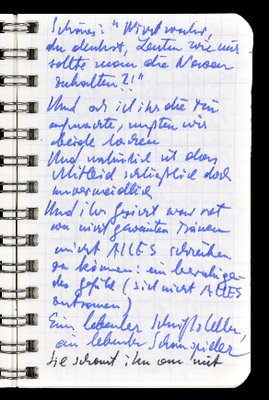 Schönes: "Nicht wahr,
du denkst, Leuten wie mir
sollte man die Nasen
zuhalten?!"
Und als ich ihr die Tür
aufmachte, mußten wir
beide lachen
Und natürlich ist dann
Mitleid schließlich doch
unvermeidlich
Und ihr Gesicht war rot
von nicht geweinten Tränen
nicht ALLES schreiben
zu können: ein beruhigen-
des Gefühl (sich nicht ALLES
zutrauen)
Ein lebender Schriftsteller,
ein lebender Schauspieler
Sie schaut ihn an mit